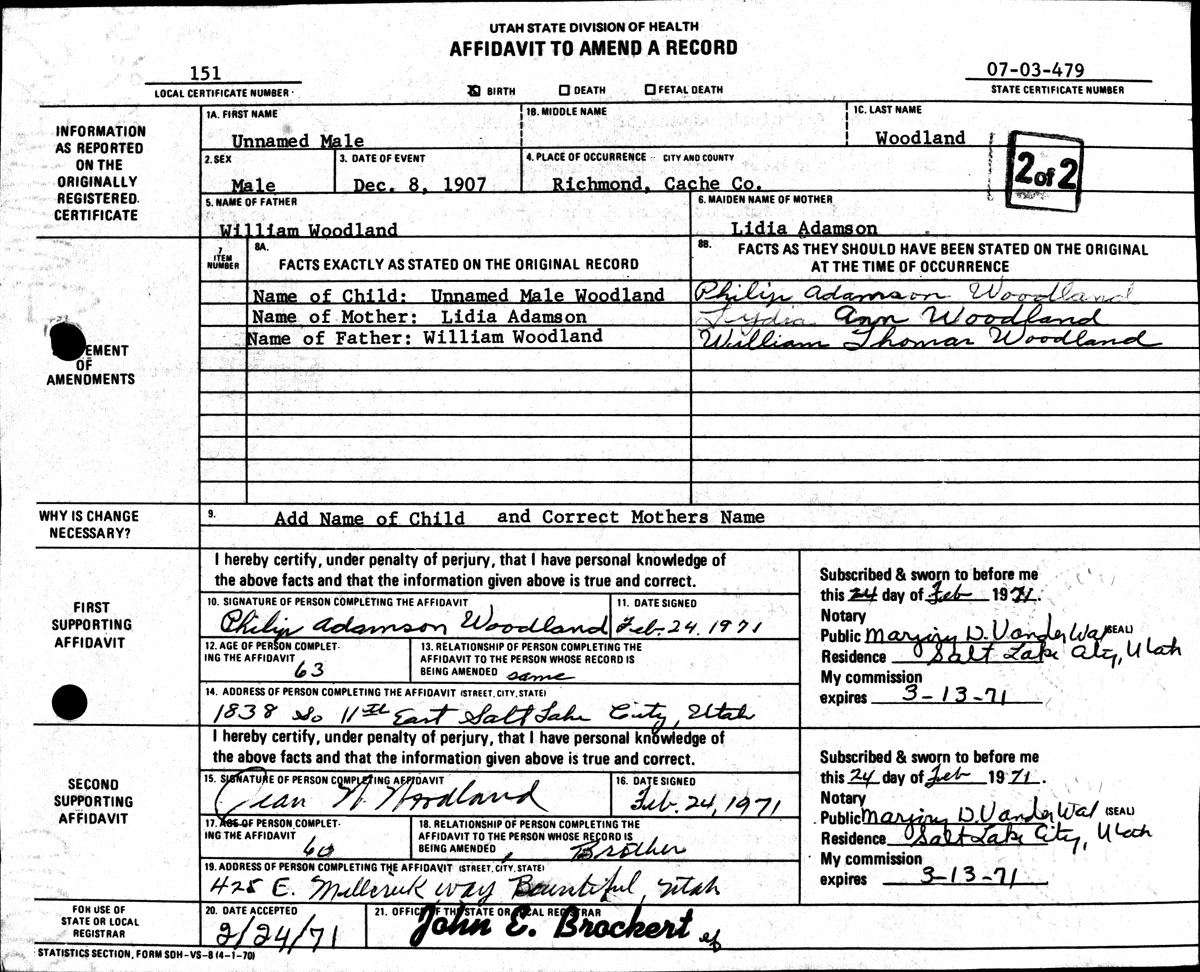 UTAH STATE DIVISION OF HEALTH
AFFIDAVIT TO AMEND A RECORD
151
LOCAL CERTIFICATE NUMBER
☒ BIRTH ☐ DEATH ☐ FETAL DEATH
07-03-479
STATE CERTIFICATE NUMBER
INFORMATION
AS REPORTED
ON THE
ORIGINALLY
REGISTERED
CERTIFICATE
1A. FIRST NAME
Unnamed Male
1B. MIDDLE NAME
1C. LAST NAME
Woodland
2. SEX
Male
3. DATE OF EVENT
Dec. 8, 1907
4. PLACE OF OCCURRENCE - CITY AND COUNTY
Richmond, Cache Co.
2 of 2
5. NAME OF FATHER
William Woodland
6. MAIDEN NAME OF MOTHER
Lidia Adamson
EMENT
OF
AMENDMENTS
7
ITEM
NUMBER
8A.
FACTS EXACTLY AS STATED ON THE ORIGINAL RECORD
8B. FACTS AS THEY SHOULD HAVE BEEN STATED ON THE ORIGINAL
AT THE TIME OF OCCURRENCE
Name of Child: Unnamed Male Woodland Philip Adamson Woodland
Name of Mother: Lidia Adamson Lydia Ann Woodland
Name of Father: William Woodland William Thomas Woodland
WHY IS CHANGE
NECESSARY?
9. Add Name of Child and Correct Mothers Name
FIRST
SUPPORTING
AFFIDAVIT
I hereby certify, under penalty of perjury, that I have personal knowledge of
the above facts and that the information given above is true and correct.
10. SIGNATURE OF PERSON COMPLETING THE AFFIDAVIT
Philip Adamson Woodland
11. DATE SIGNED
Feb. 24, 1971
12. AGE OF PERSON COMPLET-
ING THE AFFIDAVIT
63
13. RELATIONSHIP OF PERSON COMPLETING THE
AFFIDAVIT TO THE PERSON WHOSE RECORD IS
BEING AMENDED same
14. ADDRESS OF PERSON COMPLETING THE AFFIDAVIT (STREET, CITY, STATE)
1838 So 11th East Salt Lake City, Utah
Subscribed & sworn to before me
this 24 day of Feb 1971.
Notary
Public Marjory D. VanderWal (SEAL)
Residence Salt Lake City, Utah
My commission
expires 3-13-71
SECOND
SUPPORTING
AFFIDAVIT
I hereby certify, under penalty of perjury, that I have personal knowledge of
the above facts and that the information given above is true and correct.
15. SIGNATURE OF PERSON COMPLETING AFFIDAVIT
Woodland
16. DATE SIGNED
Feb. 24, 1971
17. AGE OF PERSON COMPLET-
ING THE AFFIDAVIT
18. RELATIONSHIP OF PERSON COMPLETING THE
AFFIDAVIT TO THE PERSON WHOSE RECORD IS
BEING AMENDED Brother
19. ADDRESS OF PERSON COMPLETING THE AFFIDAVIT (STREET, CITY, STATE)
425 E. Millcreek Way Bountiful, Utah
Subscribed & sworn to before me
this 24 day of Feb 1971.
Notary
Public Marjory D. VanderWal (SEAL)
Residence Salt Lake City, Utah
My commission
expires 3-13-71
FOR USE OF
STATE OR LOCAL
REGISTRAR
20. DATE ACCEPTED
2/24/71
21. OFFICE OF THE STATE OR LOCAL REGISTRAR
John E. Brockert
STATISTICS SECTION, FORM SDH-VS-8 (4-1-70)